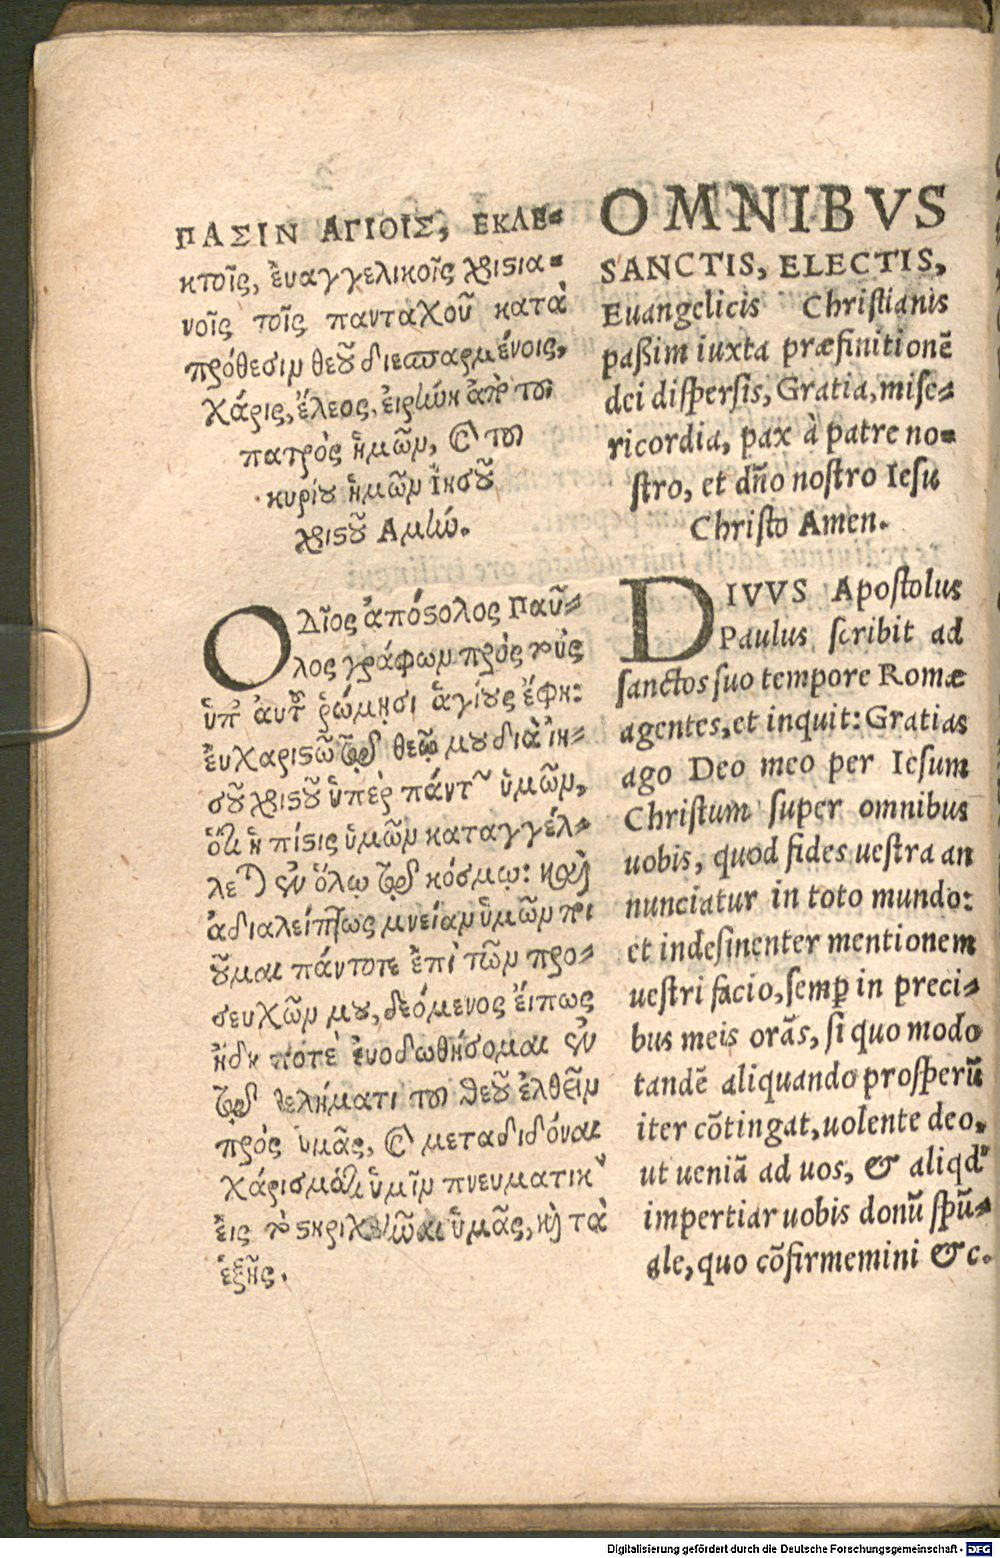 ΠΑΣΙΝ ΑΓΙΟΙΣ, ΕΚΛΕ-
κτοῖς, ἐυαγγελικοῖς χριϛια-
νοῖς τοῖς πανταχοῦ κατὰ
πρόθεσιν θεοῦ διεσπαρμένοις,
χάρις, ἔλεος, ἐιρήνη ἀπὸ τοῦ
πατρὸς ἡμῶν, καὶ τοῦ
κυρίου ἡμῶν Ἰησοῦ
χριϛοῦ Αμήν.
Ο Δῖος ἀπόϛολος Παῦ-
λος γράφων πρὸς τοὺς
ὑπ' ἀυτοῦ ῥώμησι ἁγίους ἔφη:
ἐυχαριϛῶ τῷ θεῷ μου διὰ ἰη-
σοῦ χριϛοῦ ὑπὲρ πάντων ὑμῶν,
ὅτι ἡ πίϛις ὑμῶν καταγγέλ-
λεται ἐν ὅλῳ τῷ κόσμῳ: καὶ
ἀδιαλείπτως μνείαν ὑμῶν ποι
οῦμαι πάντοτε ἐπὶ τῶν προ-
σευχῶν μου, δεόμενος ἔιπως
ἤδη ποτὲ ἐυοδωθήσομαι ἐν
τῷ θελήματι τοῦ θεοῦ ἐλθεῖν
πρὸς ὑμᾶς, καὶ μεταδιδόναι
χάρισμά τι ὑμῖν πνευματικὸν
ἐις τὸ ϛηριχθῆναι ὑμᾶς, καὶ τὰ
ἑξῆς.
OMNIBVS
SANCTIS, ELECTIS,
Euangelicis Christianis
paßim iuxta præfinitionẽ
dei dispersis, Gratia, mise-
ricordia, pax à patre no-
stro, et dño nostro Iesu
Christo Amen.
DIVVS Apostolus
Paulus scribit ad
sanctos suo tempore Romæ
agentes, et inquit: Gratias
ago Deo meo per Iesum
Christum super omnibus
uobis, quod fides uestra an
nunciatur in toto mundo:
et indesinenter mentionem
uestri facio, semp̱ in preci-
bus meis orãs, si quo modo
tandẽ aliquando prosperũ
iter cõtingat, uolente deo,
ut ueniã ad uos, & aliqd'
impertiar uobis donũ spũ-
ale, quo cõfirmemini &c.
Digitalisierung gefördert durch die Deutsche Forschungsgemeinschaft - DFG